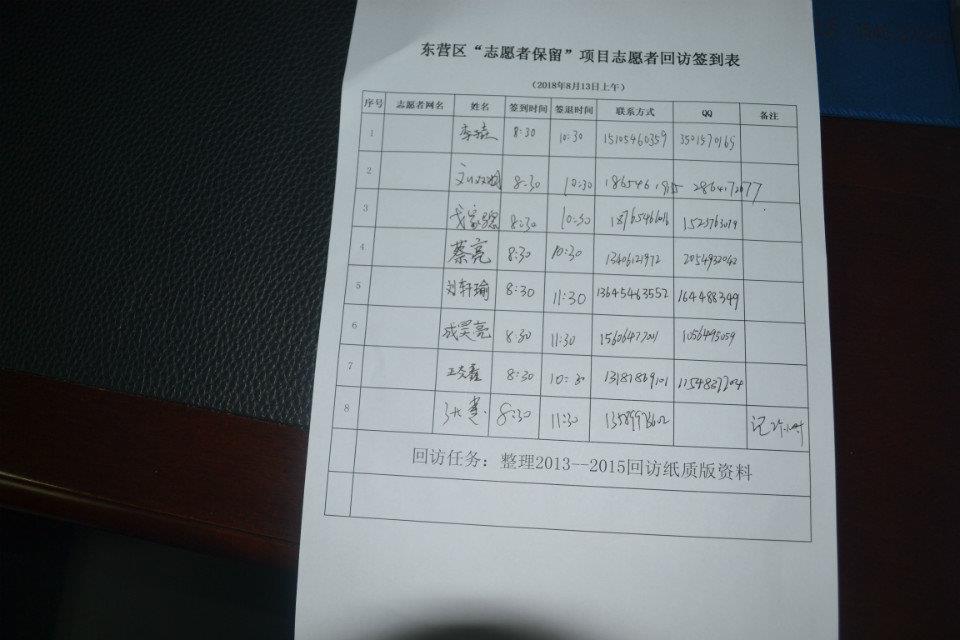 东营区“志愿者保留”项目志愿者回访签到表
（2018年8月13日上午）
序号 志愿者网名 姓名 签到时间 签退时间 联系方式 QQ 备注
1 8:30 10:30 15105460359 3501570169
2 8:30 10:30
3 8:30 10:30 1523763079
4 蔡亮 8:30 10:30 13406121972 2054932042
5 刘轩瑜 8:30 11:30 13645463552 164488349
6 成昊亮 8:30 11:30 1056495059
7 8:30 10:30 13181869101
8 8:30 11:30
回访任务：整理2013--2015回访纸质版资料